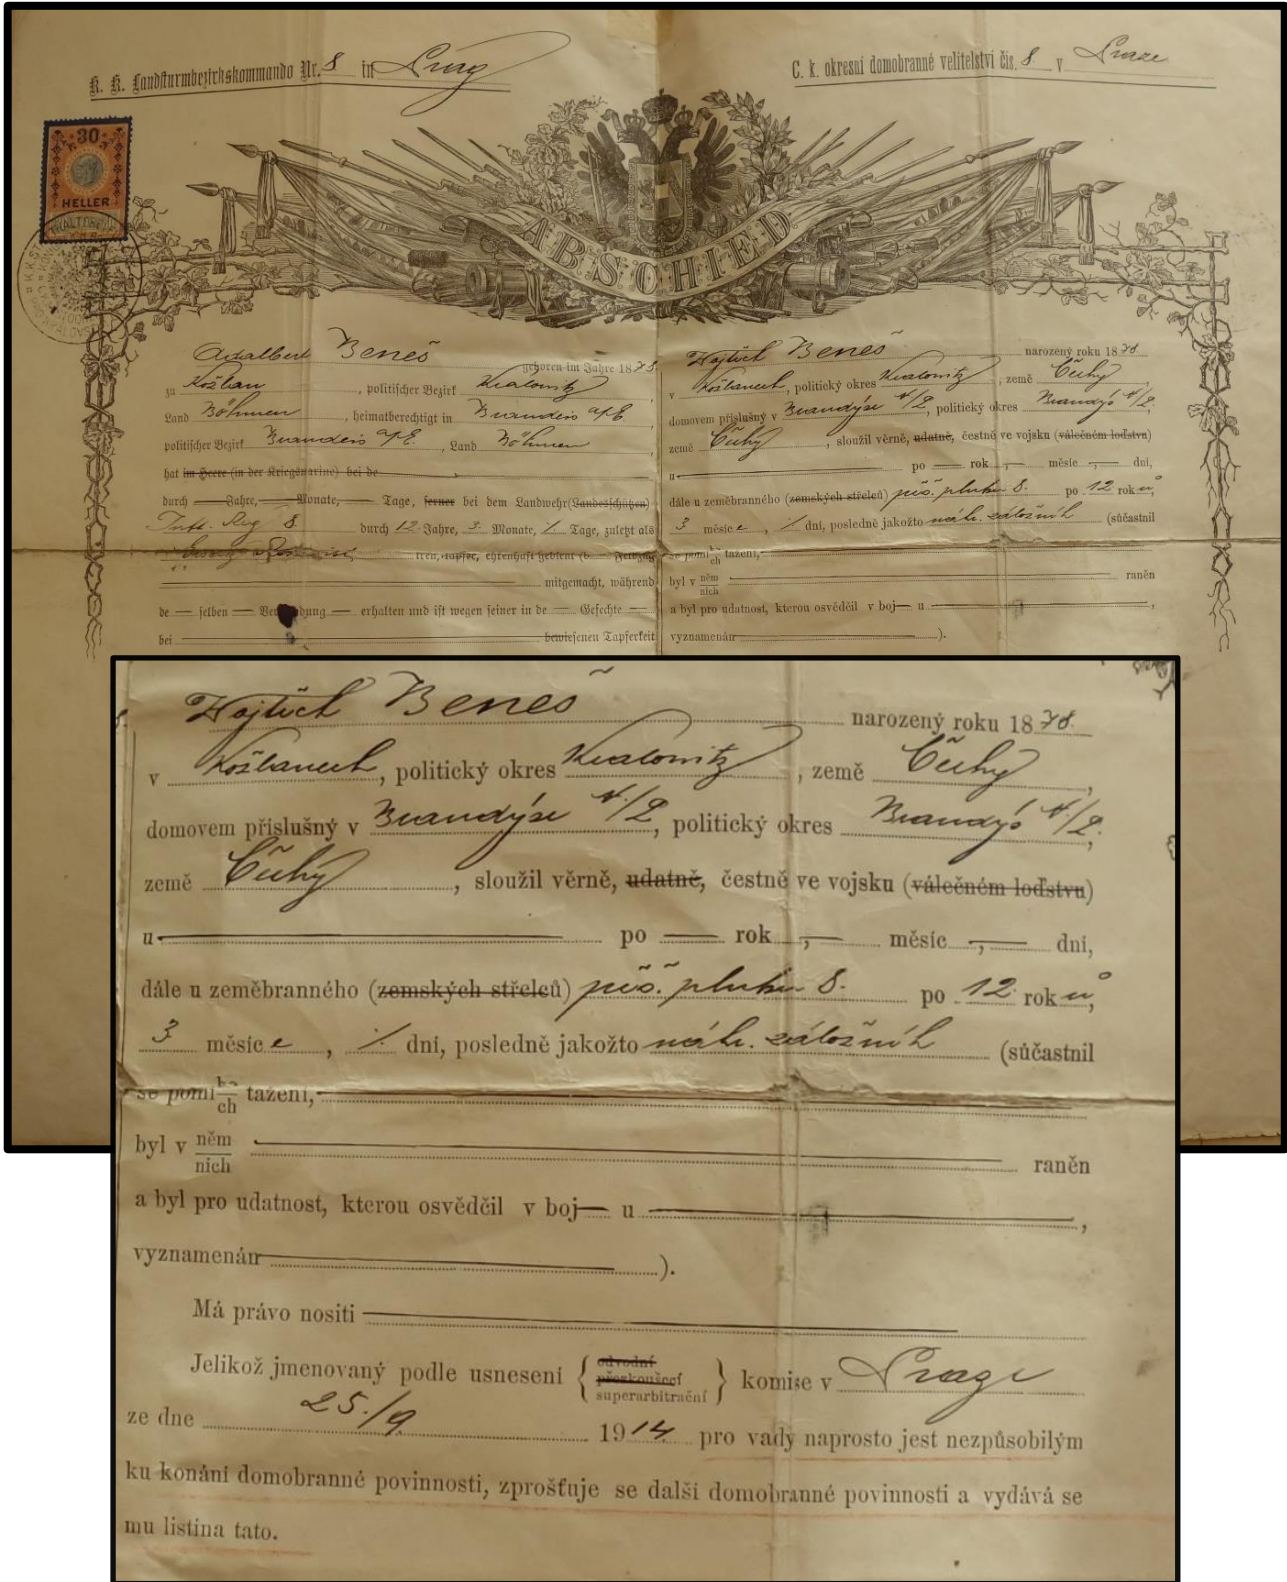 K. K. Landsturmbezirkskommando Nr. 8 in Prag
C. k. okresní domobranné velitelství čís. 8 v Praze
30
HELLER
ABSCHIED
Adalbert Beneš geboren im Jahre 1878
zu Kožlan, politischer Bezirk Kralowitz
Land Böhmen, heimatberechtigt in Brandeis a/E.
politischer Bezirk Brandeis a/E., Land Böhmen
hat im Heere (in der Kriegsmarine) bei de
durch — Jahre, — Monate, — Tage, ferner bei dem Landwehr (Landesschützen)
Inft. Reg 8. durch 12 Jahre, 3 Monate, /. Tage, zuletzt als
treu, tapfer, ehrenhaft gedient (b— Feldzug
mitgemacht, während
de — selben — Verwundung — erhalten und ist wegen seiner in de — Gefechte —
bei bewiesenen Tapferkeit
Vojtěch Beneš narozený roku 1878
v Kožlanech, politický okres Kralowitz, země Čechy
domovem příslušný v Brandýse n/L, politický okres Brandýs n/L.
země Čechy, sloužil věrně, udatně, čestně ve vojsku (válečném loďstvu)
u — po — rok —, — měsíc —, — dní,
dále u zeměbranného (zemských střelců) pěš. pluku 8. po 12 roků,
3 měsíce, /. dní, posledně jakožto náhr. záložník (súčastnil
se pomí ch tažení,
byl v něm nich raněn
a byl pro udatnost, kterou osvědčil v boj— u —,
vyznamenán ).
Vojtěch Beneš narozený roku 1878.
v Kožlanech, politický okres Kralowitz, země Čechy,
domovem příslušný v Brandýse n/L, politický okres Brandýs n/L.,
země Čechy, sloužil věrně, udatně, čestně ve vojsku (válečném loďstvu)
u — po — rok —, — měsíc —, — dní,
dále u zeměbranného (zemských střelců) pěš. pluku 8. po 12 roků,
3 měsíce, /. dní, posledně jakožto náhr. záložník (súčastnil
se pomí ch tažení,
byl v něm nich raněn
a byl pro udatnost, kterou osvědčil v boj— u —,
vyznamenán ).
Má právo nositi
Jelikož jmenovaný podle usnesení { odvodní přezkoušecí superarbitrační } komise v Praze
ze dne 25./9. 1914 pro vady naprosto jest nezpůsobilým
ku konání domobranné povinnosti, zprošťuje se další domobranné povinnosti a vydává se
mu listina tato.